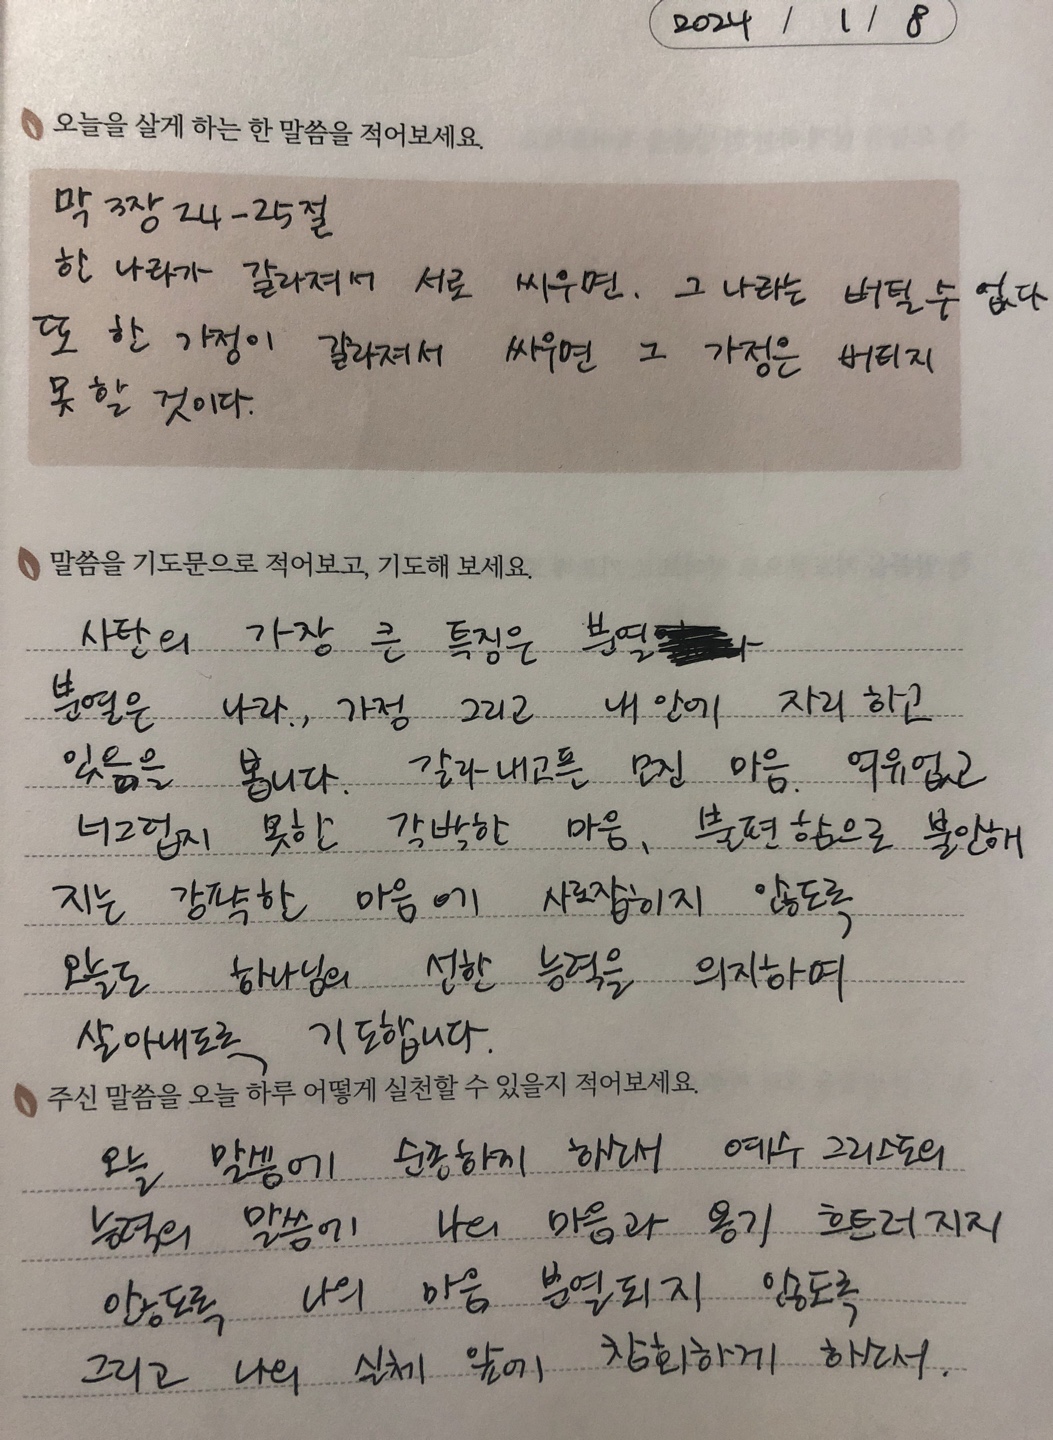 2024 / 1 / 8
오늘을 살게 하는 한 말씀을 적어보세요.
막 3장 24-25절
한 나라가 갈라져서 서로 싸우면. 그 나라는 버틸 수 없다
또 한 가정이 갈라져서 싸우면 그 가정은 버티지
못 할 것이다.
말씀을 기도문으로 적어보고, 기도해 보세요.
사탄의 가장 큰 특징은 분열
분열은 나라., 가정 그리고 내 안에 자리 하고
있음을 봅니다. 갈라내고픈 모진 마음. 여유없고
너그럽지 못한 각박한 마음, 불편함으로 불안해
지는 강퍅한 마음에 사로잡히지 않도록
오늘도 하나님의 선한 능력을 의지하며
살아내도록 기도합니다.
주신 말씀을 오늘 하루 어떻게 실천할 수 있을지 적어보세요.
오늘 말씀에 순종하게 하소서 예수 그리스도의
능력의 말씀에 나의 마음과 용기 흐트러지지
않도록 나의 마음 분열되지 않도록
그리고 나의 실체 앞에 참회하게 하소서.